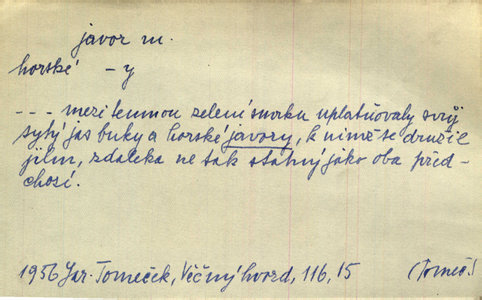 javor m.
horské - y
--- mezi temnou zelení smrku uplatňovaly svůj
sytý jas buky a horské javory, k nimž se družil
jilm, zdaleka ne tak statný jako oba před-
chozí.
1956 Jar. Tomeček, Věčný hvozd, 116, 15 (Tomeč.)